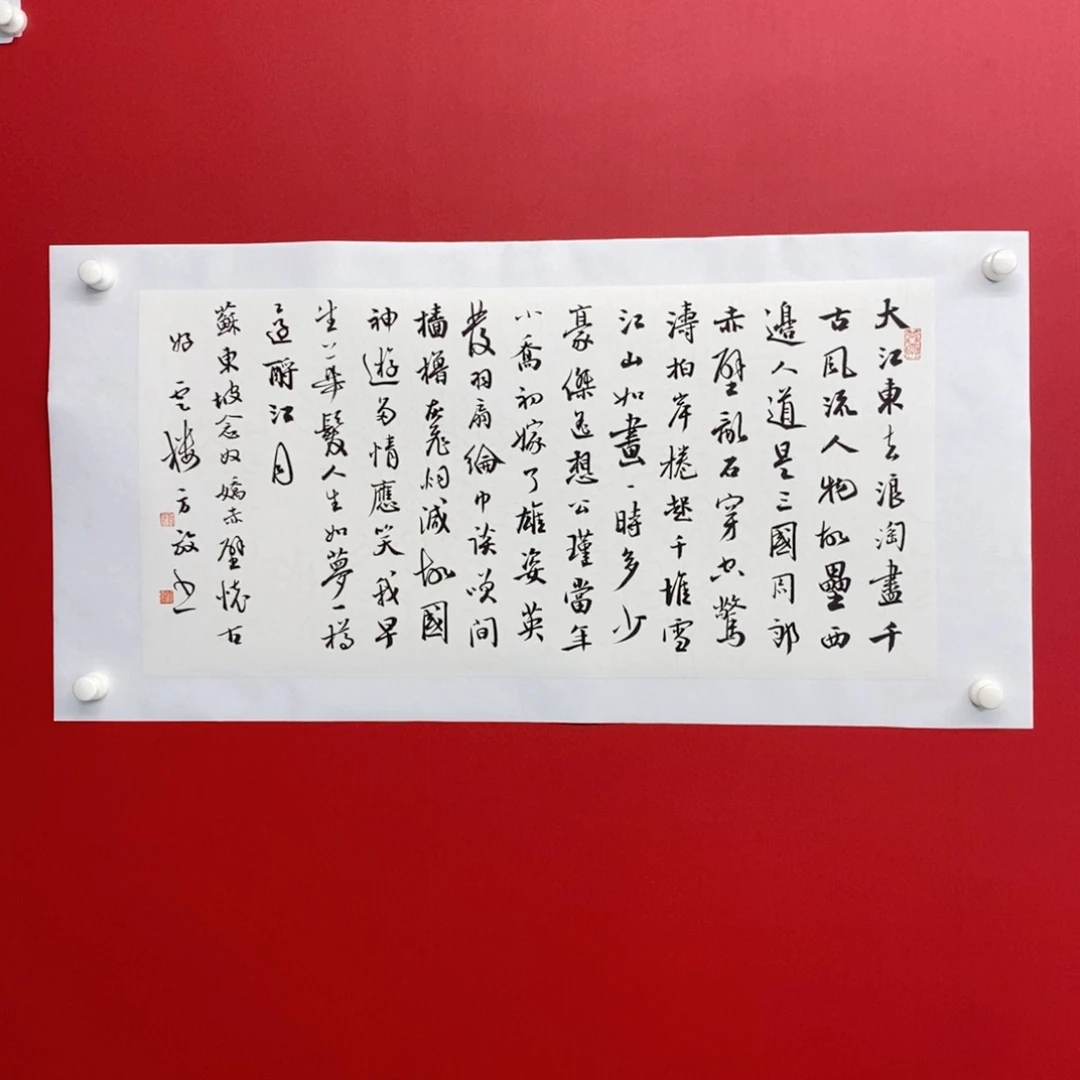 大江東去浪淘盡千
古風流人物故壘西
邊人道是三國周郎
赤壁亂石穿空驚
濤拍岸捲起千堆雪
江山如畫一時多少
豪傑遙想公瑾當年
小喬初嫁了雄姿英
發羽扇綸巾談笑間
檣櫓灰飛烟滅故國
神遊多情應笑我早
生華髮人生如夢一樽
還酹江月
蘇東坡念奴嬌赤壁懷古
樓方